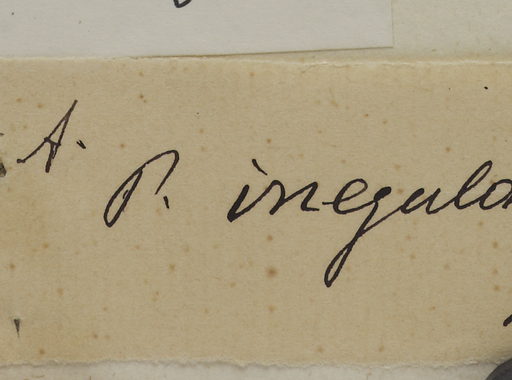 A.
P. irregula